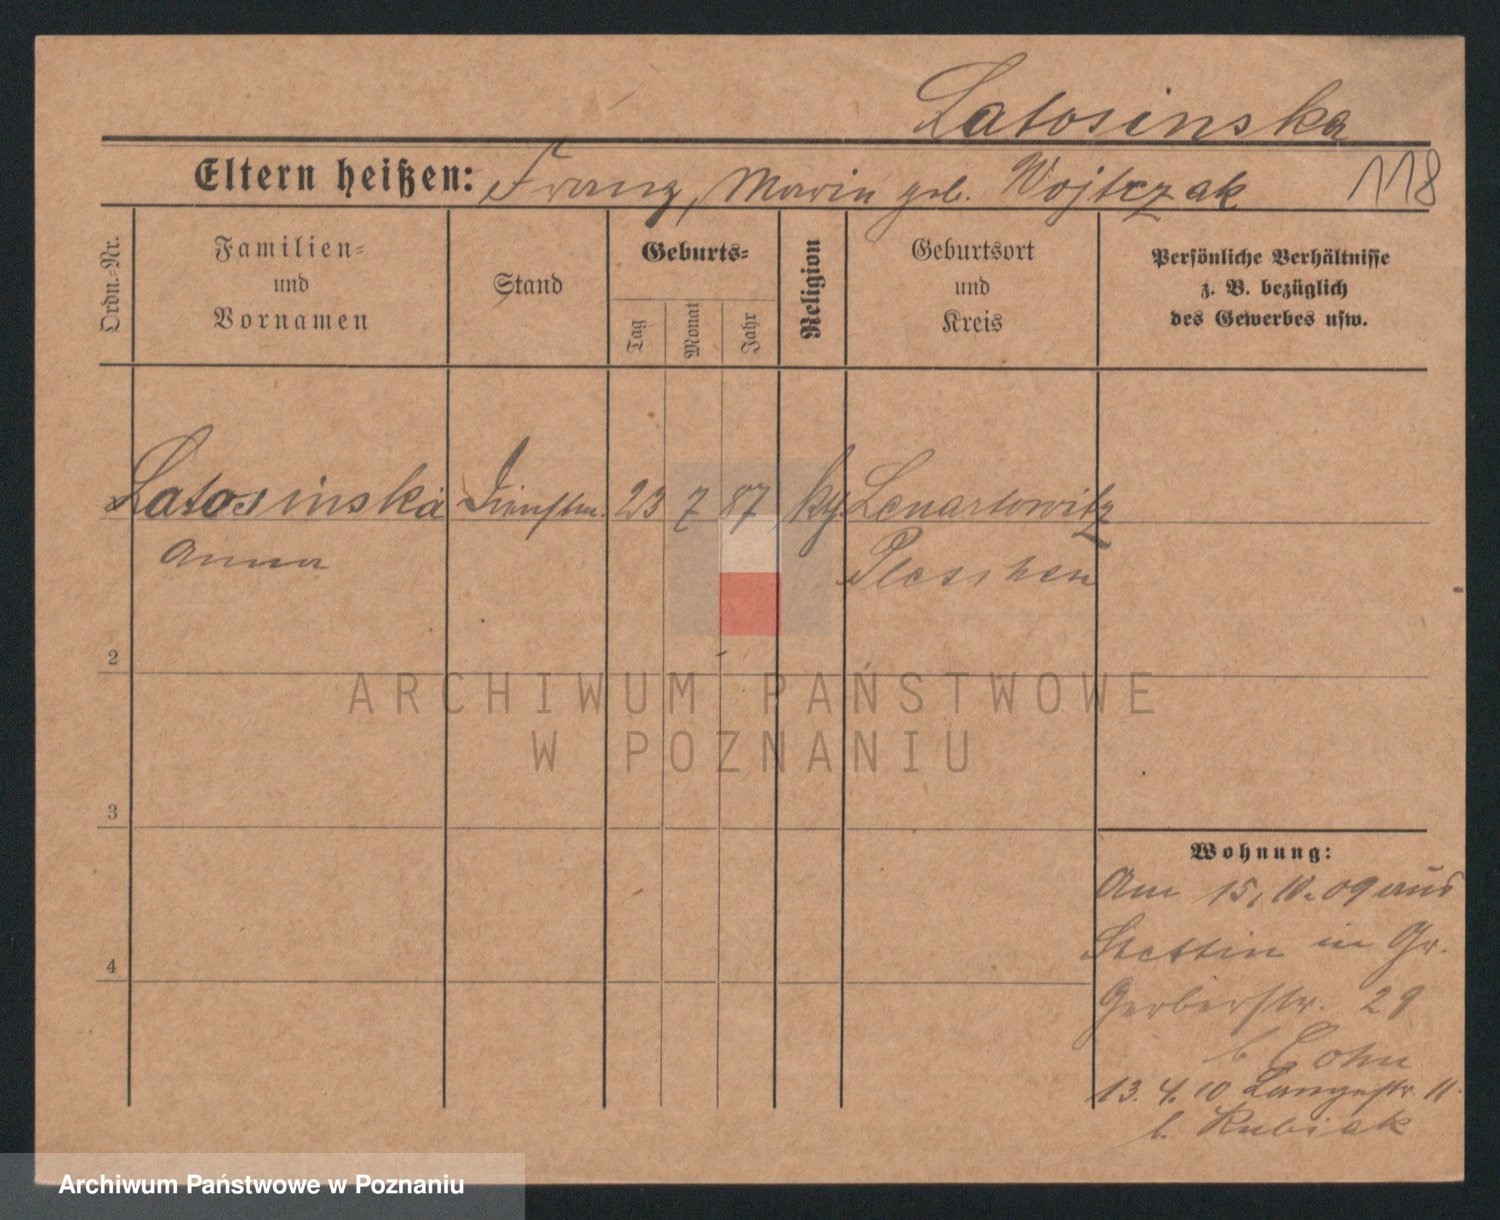 Latosinska
Eltern heißen: Franz, Marie geb. Wojtczak
118
Ordn.-Nr.
Familien-
und
Vornamen
Stand
Geburts-
Tag
Monat
Jahr
Religion
Geburtsort
und
Kreis
Persönliche Verhältnisse
z. B. bezüglich
des Gewerbes usw.
Latosinska Dienstm. 23 7 87 Lenartowitz
Anna Pleschen
2
ARCHIWUM PAŃSTWOWE
W POZNANIU
3
Wohnung:
Am 15. 10. 09 aus
Stettin in Gr.
Gerberstr. 29
b Cohn
13. 4. 10 Langestr. 11.
b. Kubiak
4
Archiwum Państwowe w Poznaniu